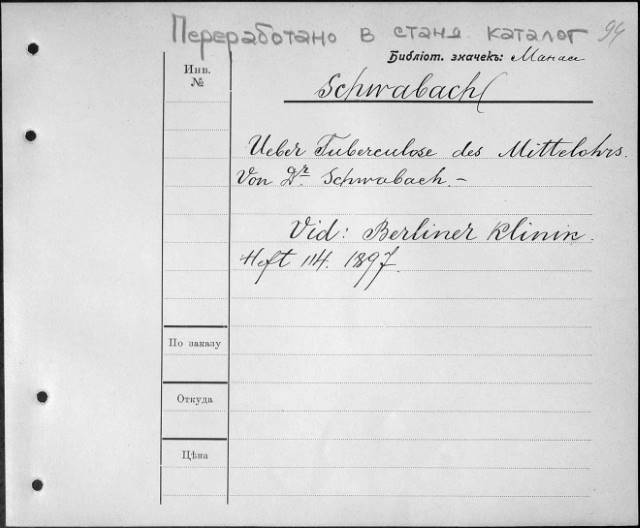 Переработано в станд. каталог 94
Библіот. значекъ:
Инв. №
Schwabach
Ueber Tuberculose des Mittelohrs.
Von Dr. Schwabach.–
Vid: Berliner Klinik.
Heft 114. 1897.
По заказу
Откуда
Цѣна